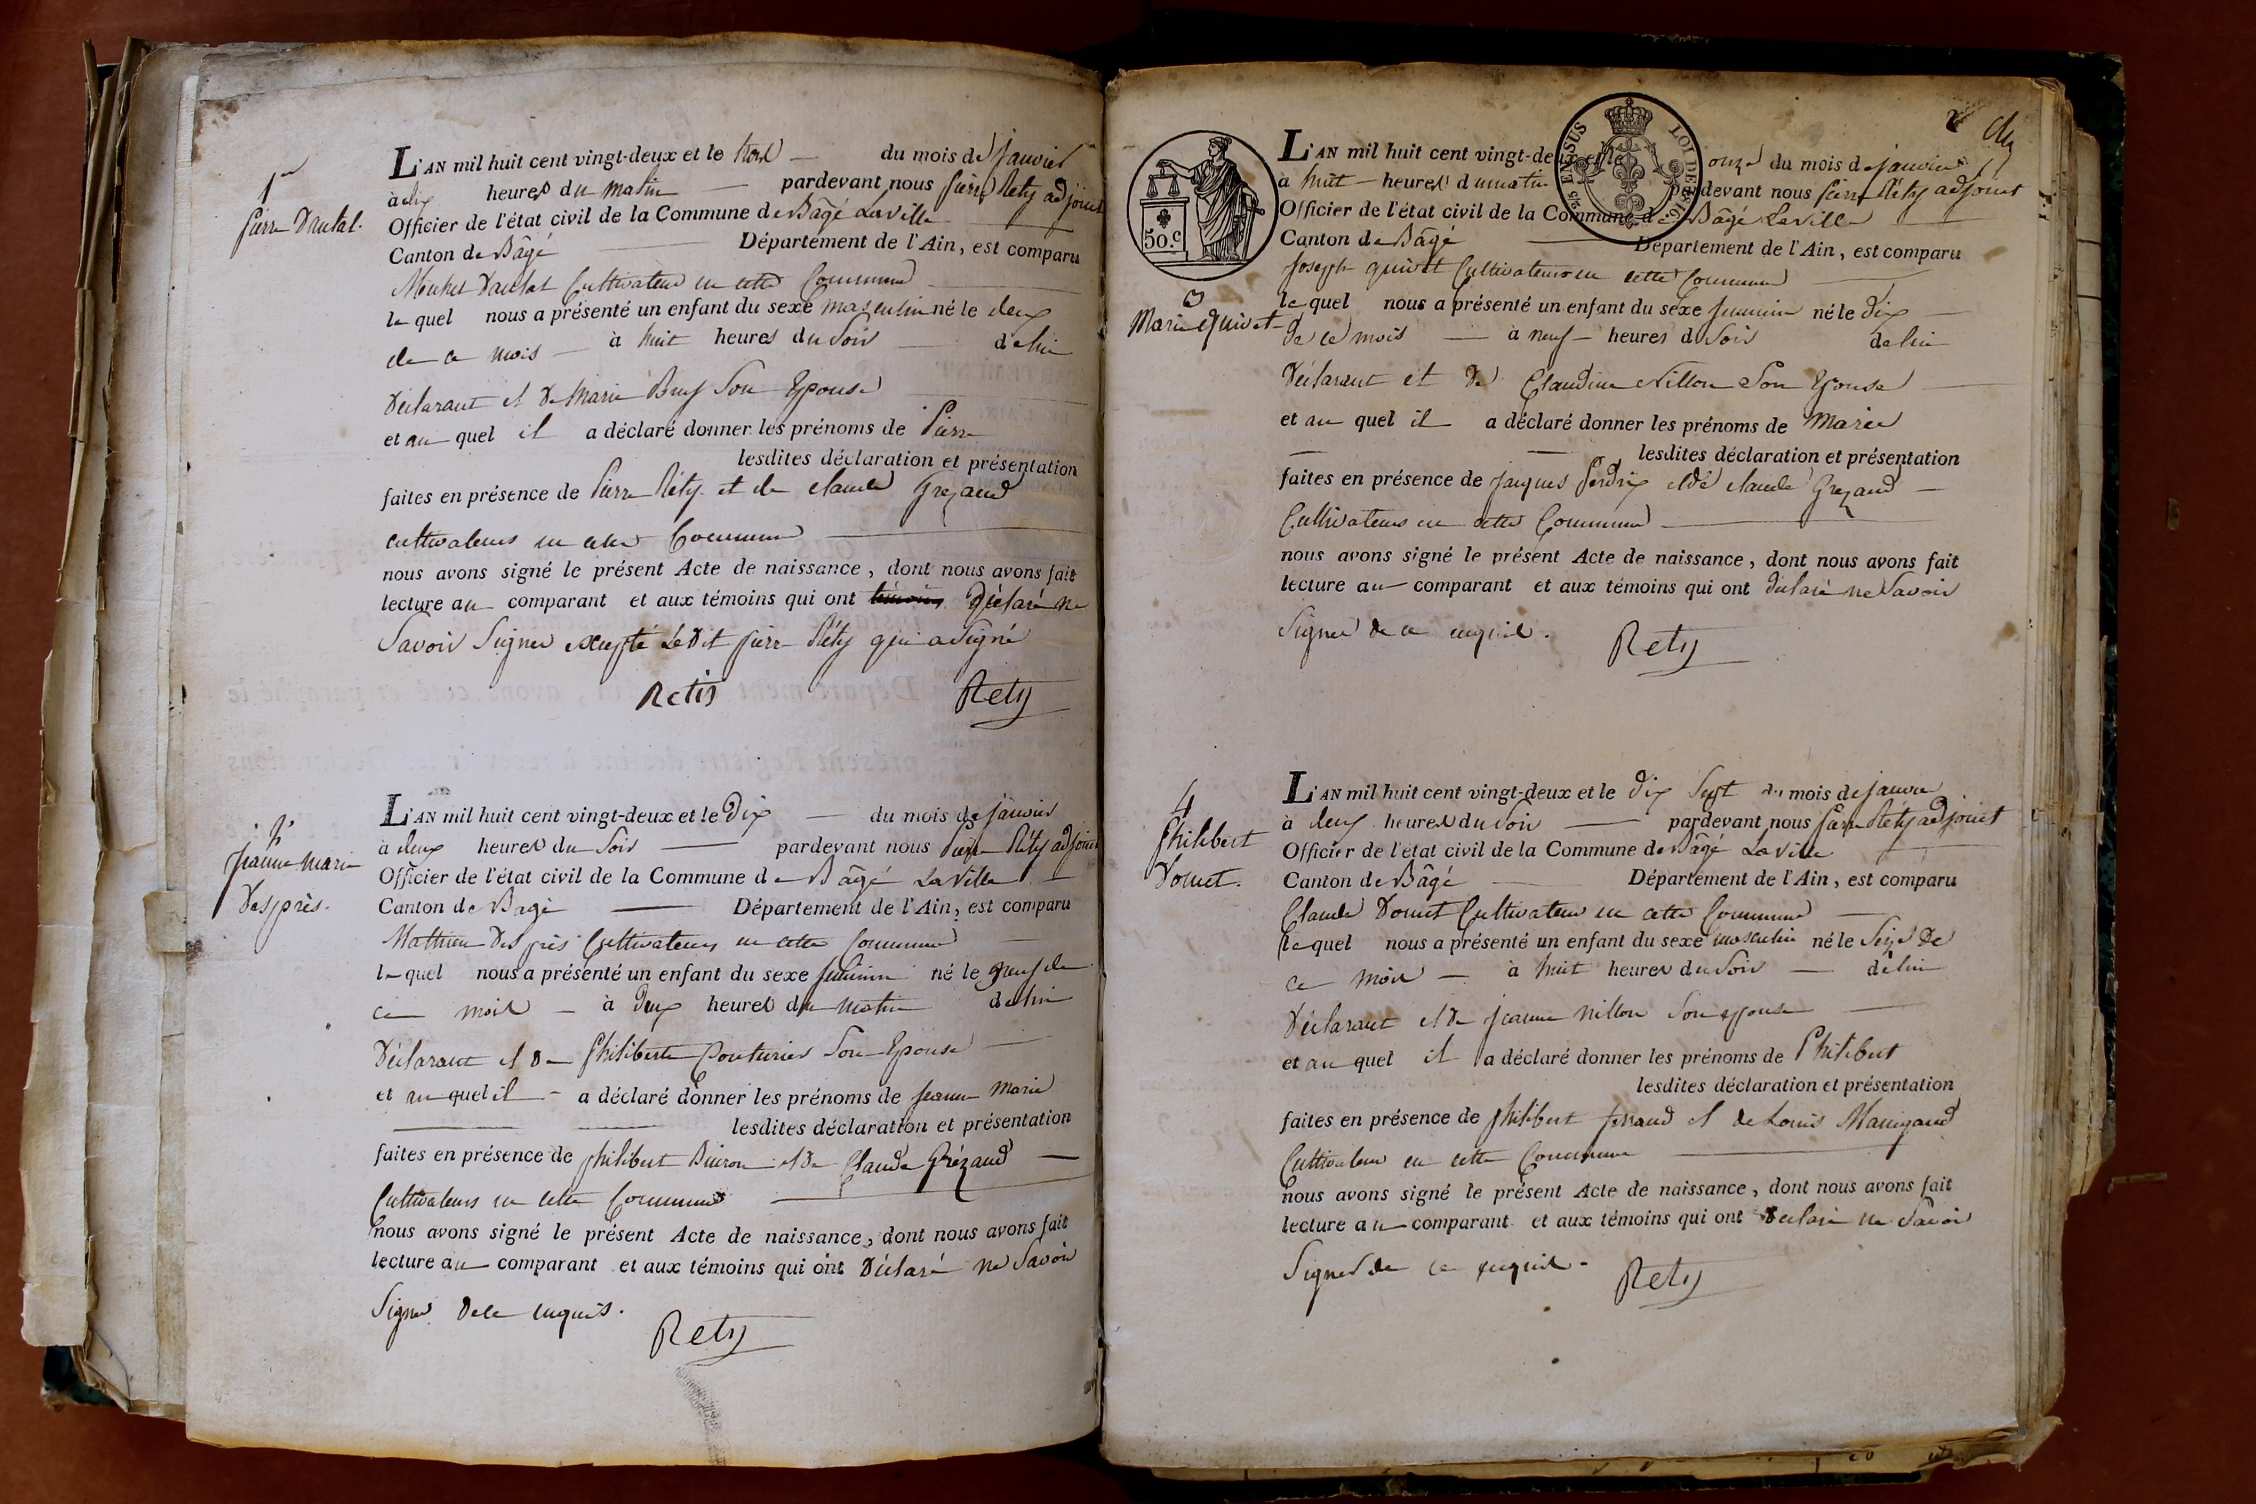 1er
Pierre Dautal.
L'AN mil huit cent vingt-deux et le trois — du mois de janvier
à dix heures du matin — pardevant nous pierre Réty adjoint
Officier de l'état civil de la Commune de Bâgé Laville
Canton de Bâgé — Département de l'Ain, est comparu
Dautal Cultivateur en cette Commune
le quel nous a présenté un enfant du sexe masculin né le deux
de ce mois — à huit heures du soir — de lui
Déclarant et de Marie Son Epouse
et au quel il a déclaré donner les prénoms de Pierre
lesdites déclaration et présentation
faites en présence de Pierre Réty et de claude Grezaud
cultivateurs en cette Commune
nous avons signé le présent Acte de naissance, dont nous avons fait
lecture au comparant et aux témoins qui ont Déclaré ne
Savoir Signer excepté Ledit pierre Réty qui a Signé
Retis Rety
2
jeanne marie
Desprès.
L'AN mil huit cent vingt-deux et le Dix — du mois de janvier
à deux heures du Soir — pardevant nous pierre Réty adjoint
Officier de l'état civil de la Commune de Bâgé LaVille
Canton de Bagé — Département de l'Ain, est comparu
Mathieu Desprès Cultivateur en cette Commune
le quel nous a présenté un enfant du sexe feminin né le neuf de
ce mois — à Deux heures du matin de lui
Déclarant et De Philiberte Couturier Son Epouse
et au quel il — a déclaré donner les prénoms de jeanne Marie
lesdites déclaration et présentation
faites en présence de philibert Buiron et De Claude Grézaud
Cultivateurs en cette Commune
nous avons signé le présent Acte de naissance, dont nous avons fait
lecture au comparant et aux témoins qui ont Déclaré ne Savoir
Signer De ce enquis.
Rety
2
50.C
EN SUS
LOI DE 1816.
3
Marie quivet
L'AN mil huit cent vingt-deux et le onze du mois de janvier
à huit — heures du matin pardevant nous pierre Réty adjoint
Officier de l'état civil de la Commune de Bâgé LaVille
Canton de Bâgé — Département de l'Ain, est comparu
Joseph quivet Cultivateur en cette Commune
le quel nous a présenté un enfant du sexe feminin né le dix
de ce mois — à neuf — heures du Soir de lui
Déclarant et de Claudine Nillon Son Epouse
et au quel il a déclaré donner les prénoms de Marie
lesdites déclaration et présentation
faites en présence de jacques perdrix et de claude Grezaud —
Cultivateurs en cette Commune
nous avons signé le présent Acte de naissance, dont nous avons fait
lecture au comparant et aux témoins qui ont déclaré ne Savoir
Signer de ce enquis.
Rety
4
Philibert
Donet.
L'AN mil huit cent vingt-deux et le dix Sept du mois de janvier
à deux heures du Soir — pardevant nous pierre Réty adjoint
Officier de l'état civil de la Commune de Bâgé LaVille
Canton de Bâgé — Département de l'Ain, est comparu
Claude Donet Cultivateur en cette Commune
le quel nous a présenté un enfant du sexe masculin né le Seize De
ce mois — à huit heures du Soir — de lui
Déclarant et De jeanne nillon Son epouse
et au quel il a déclaré donner les prénoms de Philibert
lesdites déclaration et présentation
faites en présence de philibert ferrand et de Louis
Cultivateur en cette Commune
nous avons signé le présent Acte de naissance, dont nous avons fait
lecture au comparant et aux témoins qui ont Déclaré ne Savoir
Signer de ce enquis.
Rety